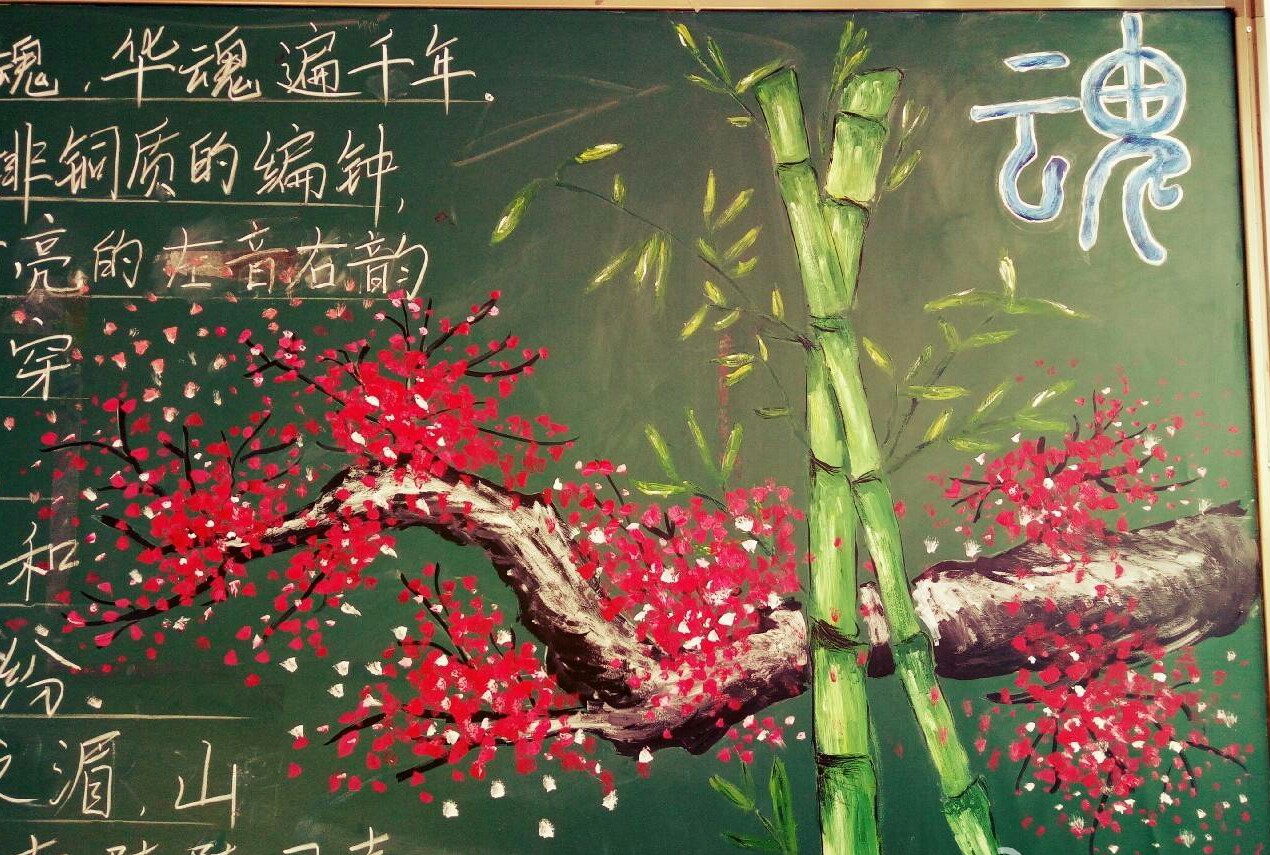 魂，华魂遍千年。
非铜质的编钟，
亮的左音右韵
穿
和
纷
之湄，山
魂